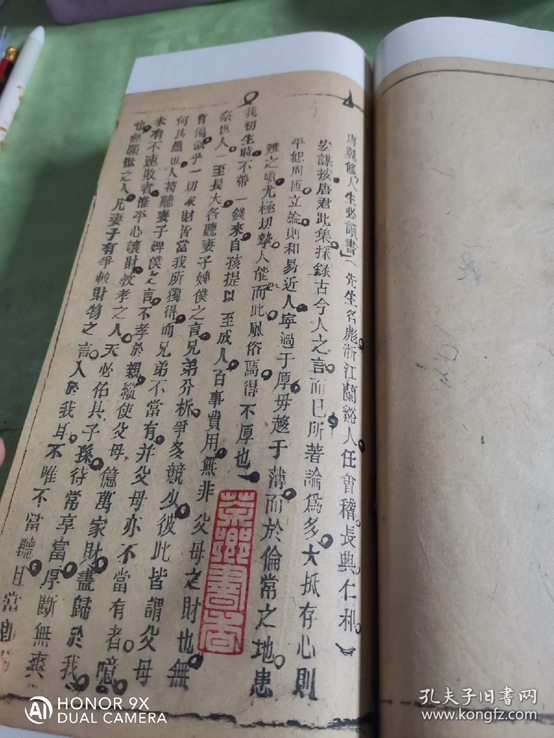 唐翼修人生必讀書（先生名彪浙江蘭谿人任會稽長興仁和）
宏謀按唐君此集採錄古今人之言而已所著論爲多大抵存心則
平恕周匝立論則和易近人寧過于厚毋趨于薄而於倫常之地患
難之頃尤極切摯人能而此風俗焉得不厚也
我初生時不帶一錢來自孩提以至成人百事費用無非父母之財也無
奈世人一至長大各聽妻子婢僕之言兄弟分析爭多競少彼此皆謂父母
有偏似乎一切家財皆當我所獨得而兄弟不當有并父母亦不當有者噫
何其愚也人苟聽妻子婢僕之言不孝於親縱使父母億萬家財盡歸於我
未有不速敗者誰乎心讓財敎孝之人天必佑其子孫待常享富厚斷無爽
也無顧世之人凡妻子有爭較財物之言入於我耳不唯不當聽且當
茶鄉書舍
AI HONOR 9X
DUAL CAMERA
孔夫子旧书网